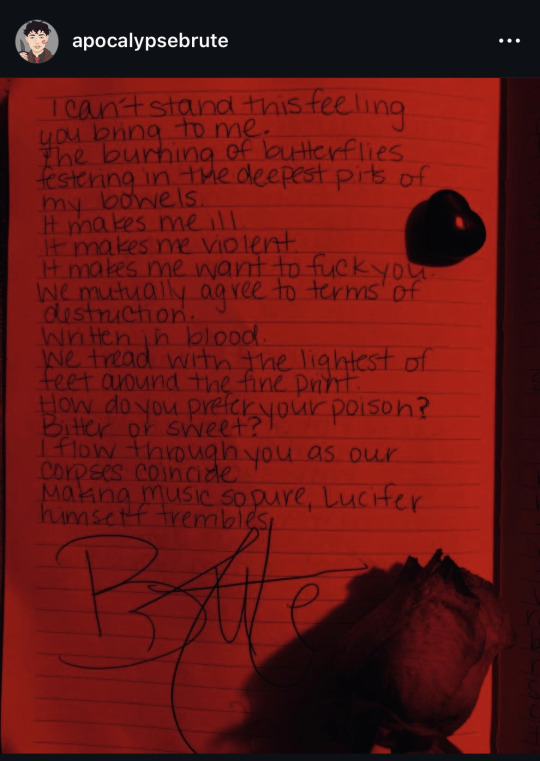 apocalypsebrute
I can't stand this feeling
you bring to me.
The burning of butterflies
festering in the deepest pits of
my bowels.
It makes me ill.
It makes me violent.
It makes me want to fuck you.
We mutually agree to terms of
destruction.
Written in blood.
We tread with the lightest of
feet around the fine print.
How do you prefer your poison?
Bitter or sweet?
I flow through you as our
corpses coincide
Making music so pure, Lucifer
himself trembles.
Brute